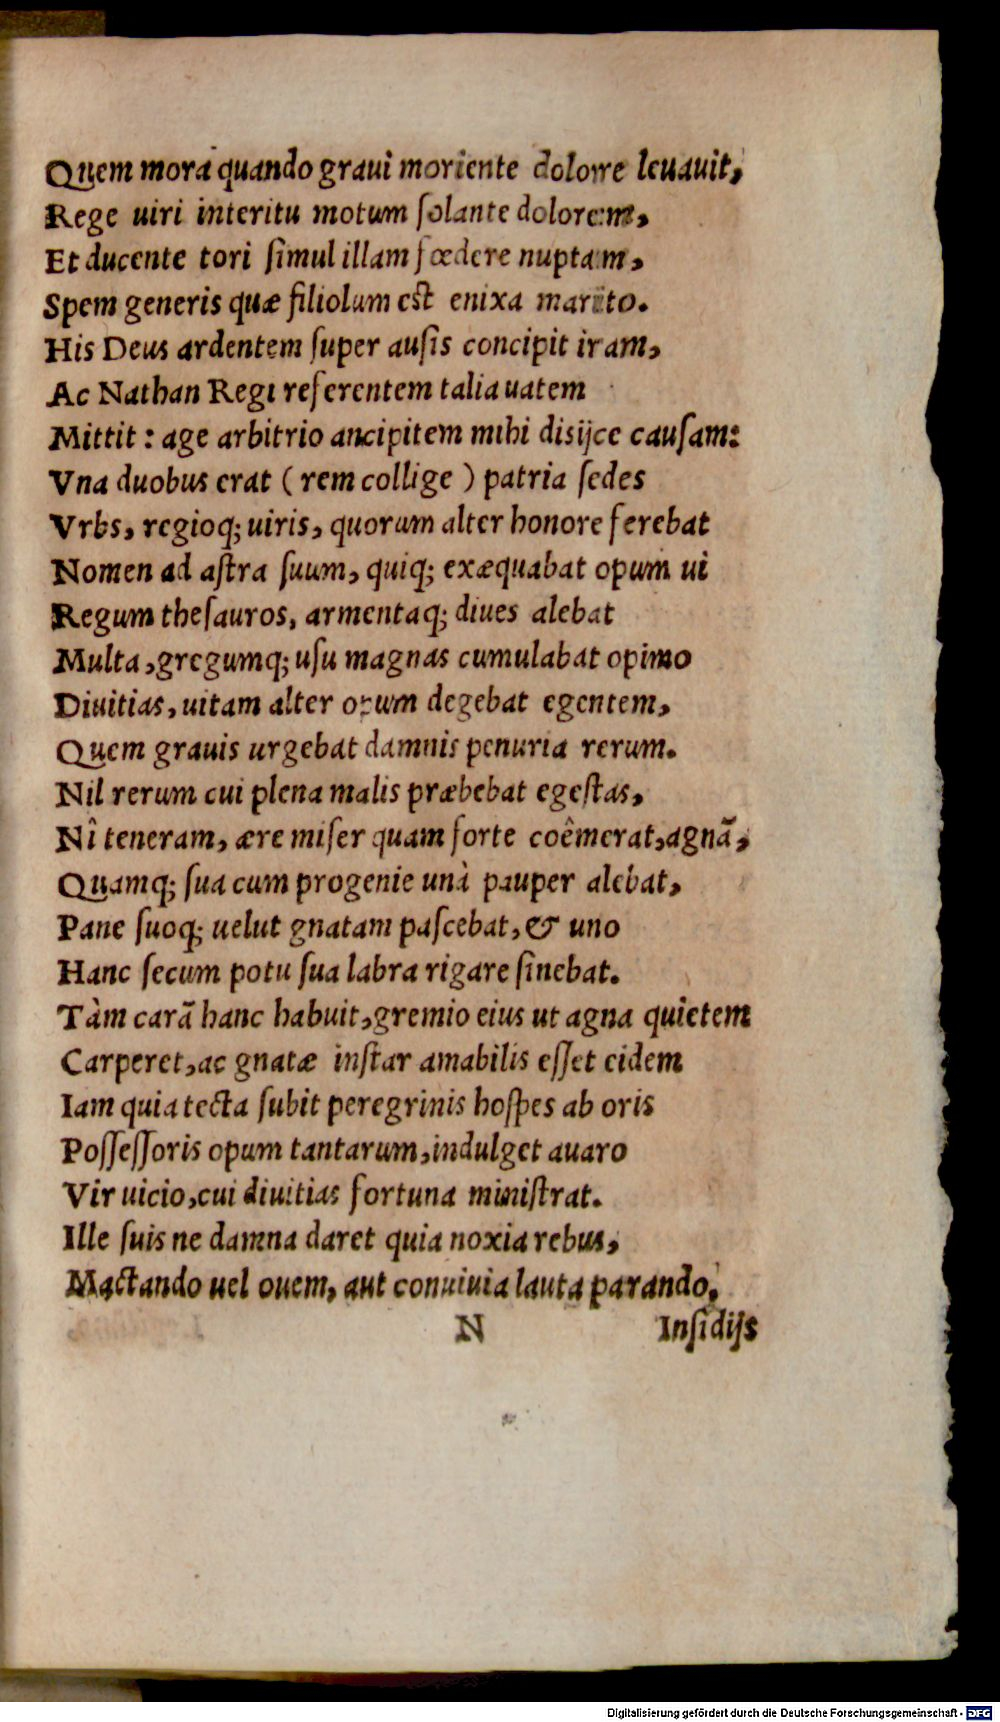 Quem mora quando graui moriente dolore leuauit,
Rege uiri interitu motum ſolante dolorem,
Et ducente tori ſimul illam fœdere nuptam,
Spem generis quæ filiolum eſt enixa marito.
His Deus ardentem ſuper auſis concipit iram,
Ac Nathan Regi referentem talia uatem
Mittit: age arbitrio ancipitem mihi disijce cauſam:
Vna duobus erat (rem collige) patria ſedes
Vrbs, regioq; uiris, quorum alter honore ferebat
Nomen ad aſtra ſuum, quiq; exæquabat opum ui
Regum theſauros, armentaq; diues alebat
Multa, gregumq; uſu magnas cumulabat opimo
Diuitias, uitam alter opum degebat egentem,
Quem grauis urgebat damnis penuria rerum.
Nil rerum cui plena malis præbebat egeſtas,
Nî teneram, ære miſer quam forte coêmerat, agnã,
Quamq; ſua cum progenie unà pauper alebat,
Pane ſuoq; uelut gnatam paſcebat, & uno
Hanc ſecum potu ſua labra rigare ſinebat.
Tàm carã hanc habuit, gremio eius ut agna quietem
Carperet, ac gnatæ inſtar amabilis eſſet eidem
Iam quia tecta ſubit peregrinis hoſpes ab oris
Poſſeſſoris opum tantarum, indulget auaro
Vir uicio, cui diuitias fortuna miniſtrat.
Ille ſuis ne damna daret quia noxia rebus,
Mactando uel ouem, aut conuiuia lauta parando,
N Inſidijs
Digitalisierung gefördert durch die Deutsche Forschungsgemeinschaft - DFG